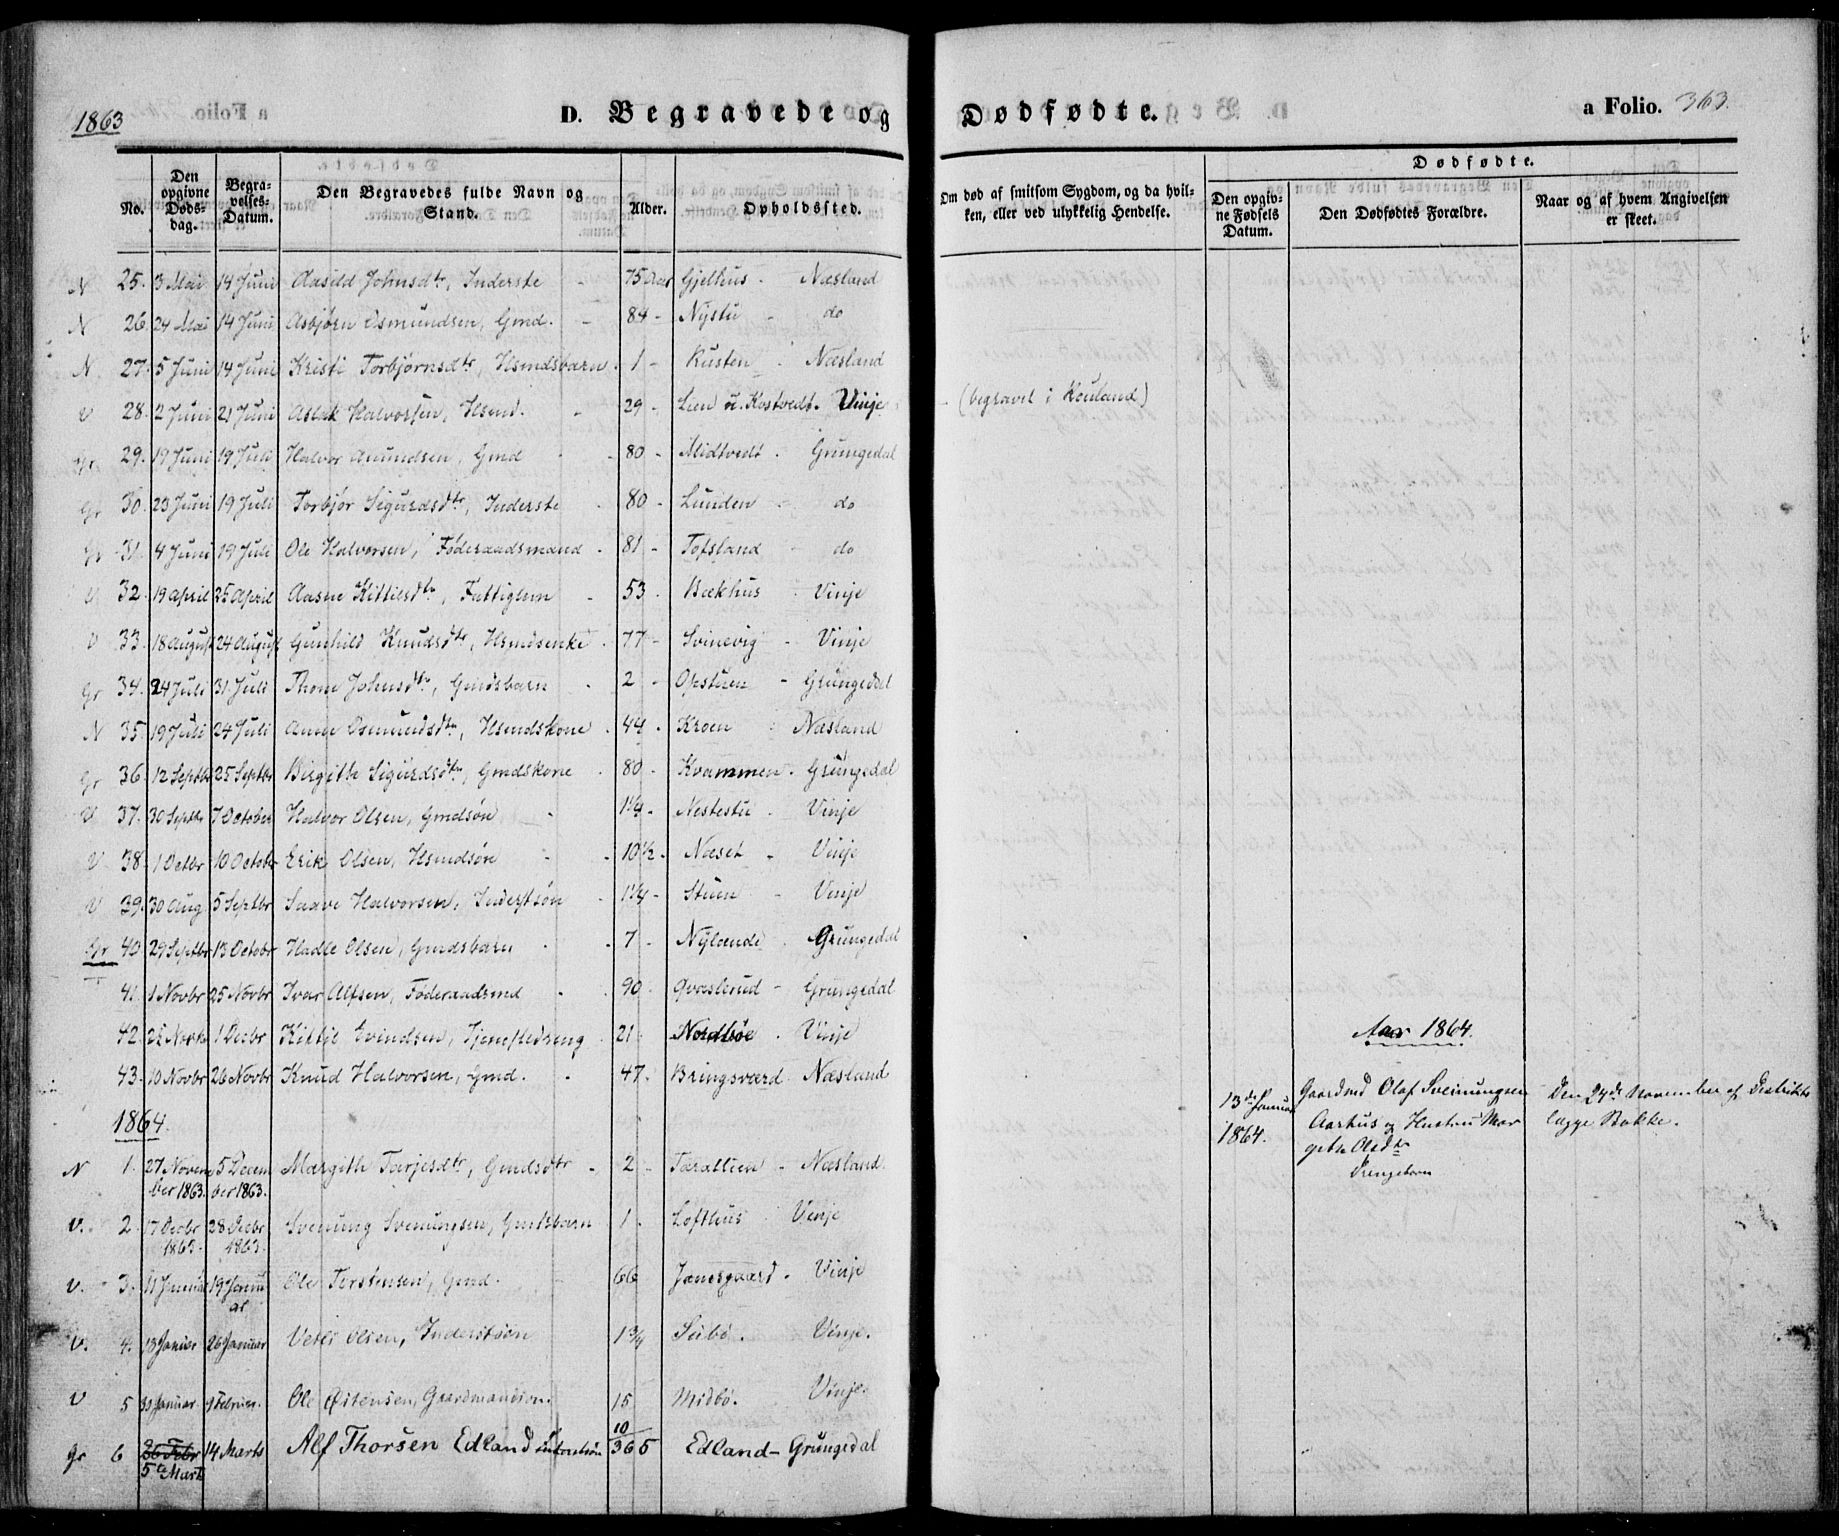 1863
D. Begravede og Dødfødte.
a Folio. 363.
No.
Den opgivne Døds-dag.
Begra-velses-Datum.
Den Begravedes fulde Navn og Stand.
Alder.
Opholdssted.
Om død af smitsom Sygdom, og da hvil-ken, eller ved ulykkelig Hendelse.
Dødfødte.
Den opgiv-ne Fødsels Datum.
Den Dødfødtes Forældre.
Naar og af hvem Angivelsen er skeet.
N 25. 3 Mai 14 Juni Aasild Johnsdtr, Inderste - 75 Aar Gjelhus. Næsland
N 26. 24 Mai 14 Juni Asbjørn Osmundsen, Gmd. - 84 - Nystu - do
N. 27. 5 Juni 14 Juni Kristi Torbjørnsdtr, Hsmdsbarn. 1 - Rusten Næsland
V 28. 2 Juni 21 Juni Aslak Halvorsen, Hsmd. - 29 - Lien u. Kostvedt. Vinje - (begravet i Rouland)
Gr 29. 19 Juni 19 Juli Halvor Anundsen, Gmd - 80 - Midtvedt. Grungedal
Gr 30. 23 Juni 19 Juli Torbjør Sigurdsdtr, Inderste - 80 - Lunden - do
Gr 31. 4 Juni 19 Juli Ole Halvorsen, Føderaadsmand - 81 - Tofsland - do
V 32. 19 April 25 April Aasne Kittilsdtr, Fattiglem - 53. Bækhus - Vinje
V 33. 18 August 24 August Gunhild Knudsdtr, Hsmdsenke. 77 - Svinevig - Vinje
Gr 34. 24 Juli 31 Juli Thone Johnsdtr, Gmdsbarn - 2 - Opstuen - Grungedal
N 35. 19 Juli 24 Juli Anne Osmundsdtr, Hsmdskone. 44. Kroen Næsland
Gr 36. 12 Septbr 25 Septbr Birgithe Sigurdsdtr, Gmdskone. 80 - Kvammen. Grungedal
V 37. 30 Septbr 7 October Halvor Olsen, Gmdsøn - 1 1/4 - Nestestu. Vinje
V 38. 1 Octbr 10 Octobr Erik Olsen, Hsmdsøn - 10 1/2 - Næset - Vinje
V 39. 30 Aug 5 Septbr Saave Halvorsen, Inderstsøn - 1 1/4 - Stuen - Vinje
Gr 40 29 Septbr 13 Octobr Hadle Olsen, Gmdsbarn - 7 - Nylænde. Grungedal
41. 1 Novbr 25 Novbr Ivar Alfsen, Føderaadsmd - 90 - Qvaslerud - Grungedal
42. Novbr 1 Decbr Kittil Evindsen, Tjenestedreng. 21. Nordbøe. Vinje
43. 10 Novbr 26 Novbr Knud Halvorsen, Gmd. - 47. Bringsværd. Næsland
Aar 1864.
1864.
13de Januar 1864.
Gaardmd Olaf Sveinungsen
Aarhus og Hustru Mar
gethe Olsdtr
Drengebarn
Den 24de November af Distrikts
læge Bakke.
N 1. 27 November 1863. 5 December 1863. Margith Tarjesdtr, Gmdsdtr - 2 - Tarallien - Næsland.
V. 2. 17 Decbr 1863. 28 Decbr 1863. Svenung Svenungsen, Gmdsbarn 1. Lofthus Vinje
V. 3. 11 Januar 19 Januar Ole Torstensen, Gmd. - 66 Jamsgaard. Vinje
V. 4. 13 Januar 26 Januar Vetle Olsen, Inderstsøn 1 3/4 Seibø. Vinje.
V 5 Januar Februar. Ole Østensen, Gaardmandssøn. 15 Midbø. Vinje.
Gr 6 26 Febr 5te Marts 14 Marts Alf Thorsen Edland 10/365 Edland - Grungedal